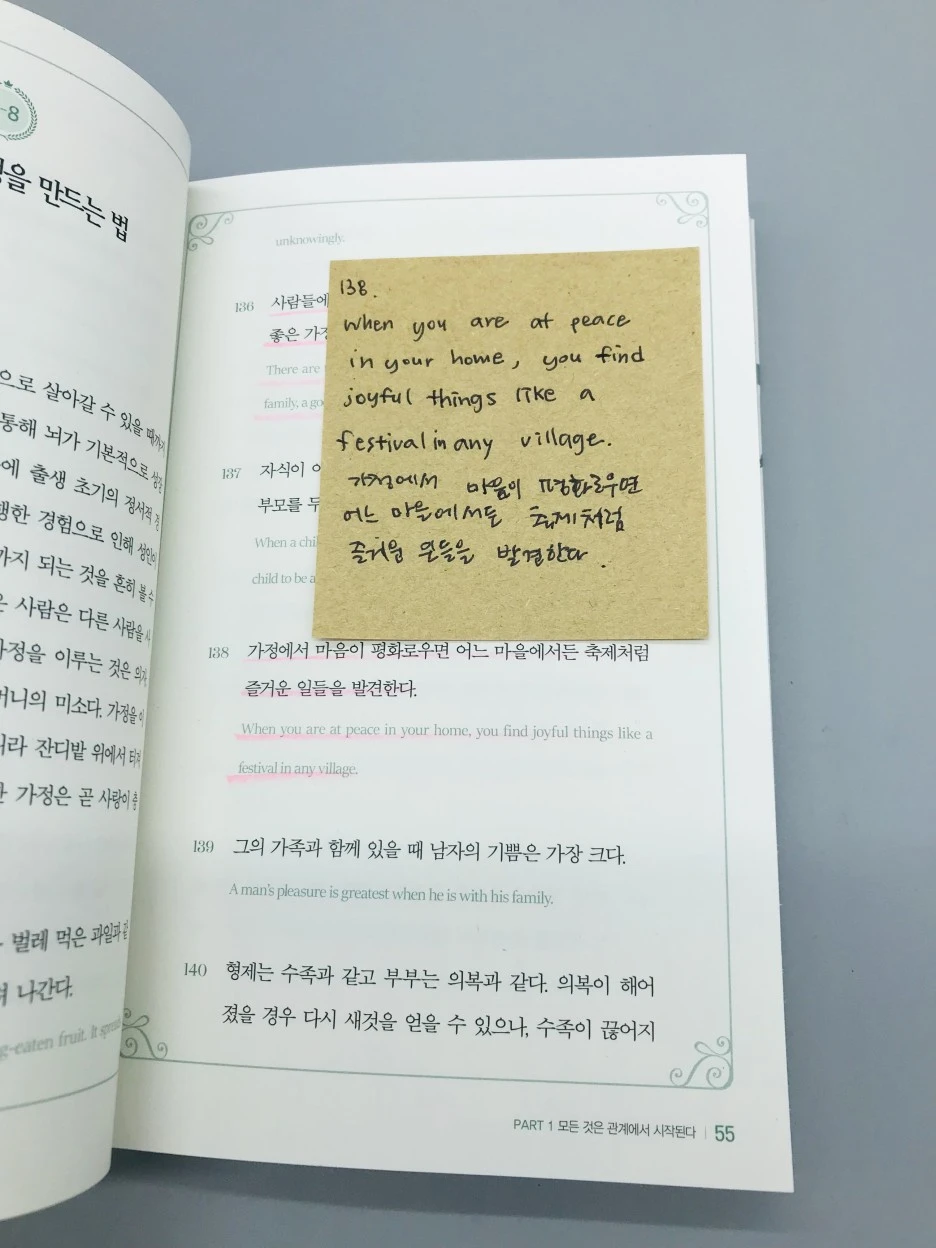 -8
을 만드는 법
으로 살아갈 수 있을 때까지
통해 뇌가 기본적으로 성장
에 출생 초기의 정서적 경
행한 경험으로 인해 성인이
까지 되는 것을 흔히 볼 수
은 사람은 다른 사람을 사
가정을 이루는 것은 의자
머니의 미소다. 가정을 이
니라 잔디밭 위에서 터져
한 가정은 곧 사랑이 충
벌레 먹은 과일과 같
져 나간다.
g-eaten fruit. It spreads
unknowingly.
136 사람들에
좋은 가정
There are
family, a go
137 자식이 어
부모를 두
When a chil
child to be a
138.
When you are at peace
in your home, you find
joyful things like a
festival in any village.
가정에서 마음이 평화로우면
어느 마을에서든 축제처럼
즐거운 일들을 발견한다.
138 가정에서 마음이 평화로우면 어느 마을에서든 축제처럼
즐거운 일들을 발견한다.
When you are at peace in your home, you find joyful things like a
festival in any village.
139 그의 가족과 함께 있을 때 남자의 기쁨은 가장 크다.
A man's pleasure is greatest when he is with his family.
140 형제는 수족과 같고 부부는 의복과 같다. 의복이 해어
졌을 경우 다시 새것을 얻을 수 있으나, 수족이 끊어지
PART 1 모든 것은 관계에서 시작된다 | 55